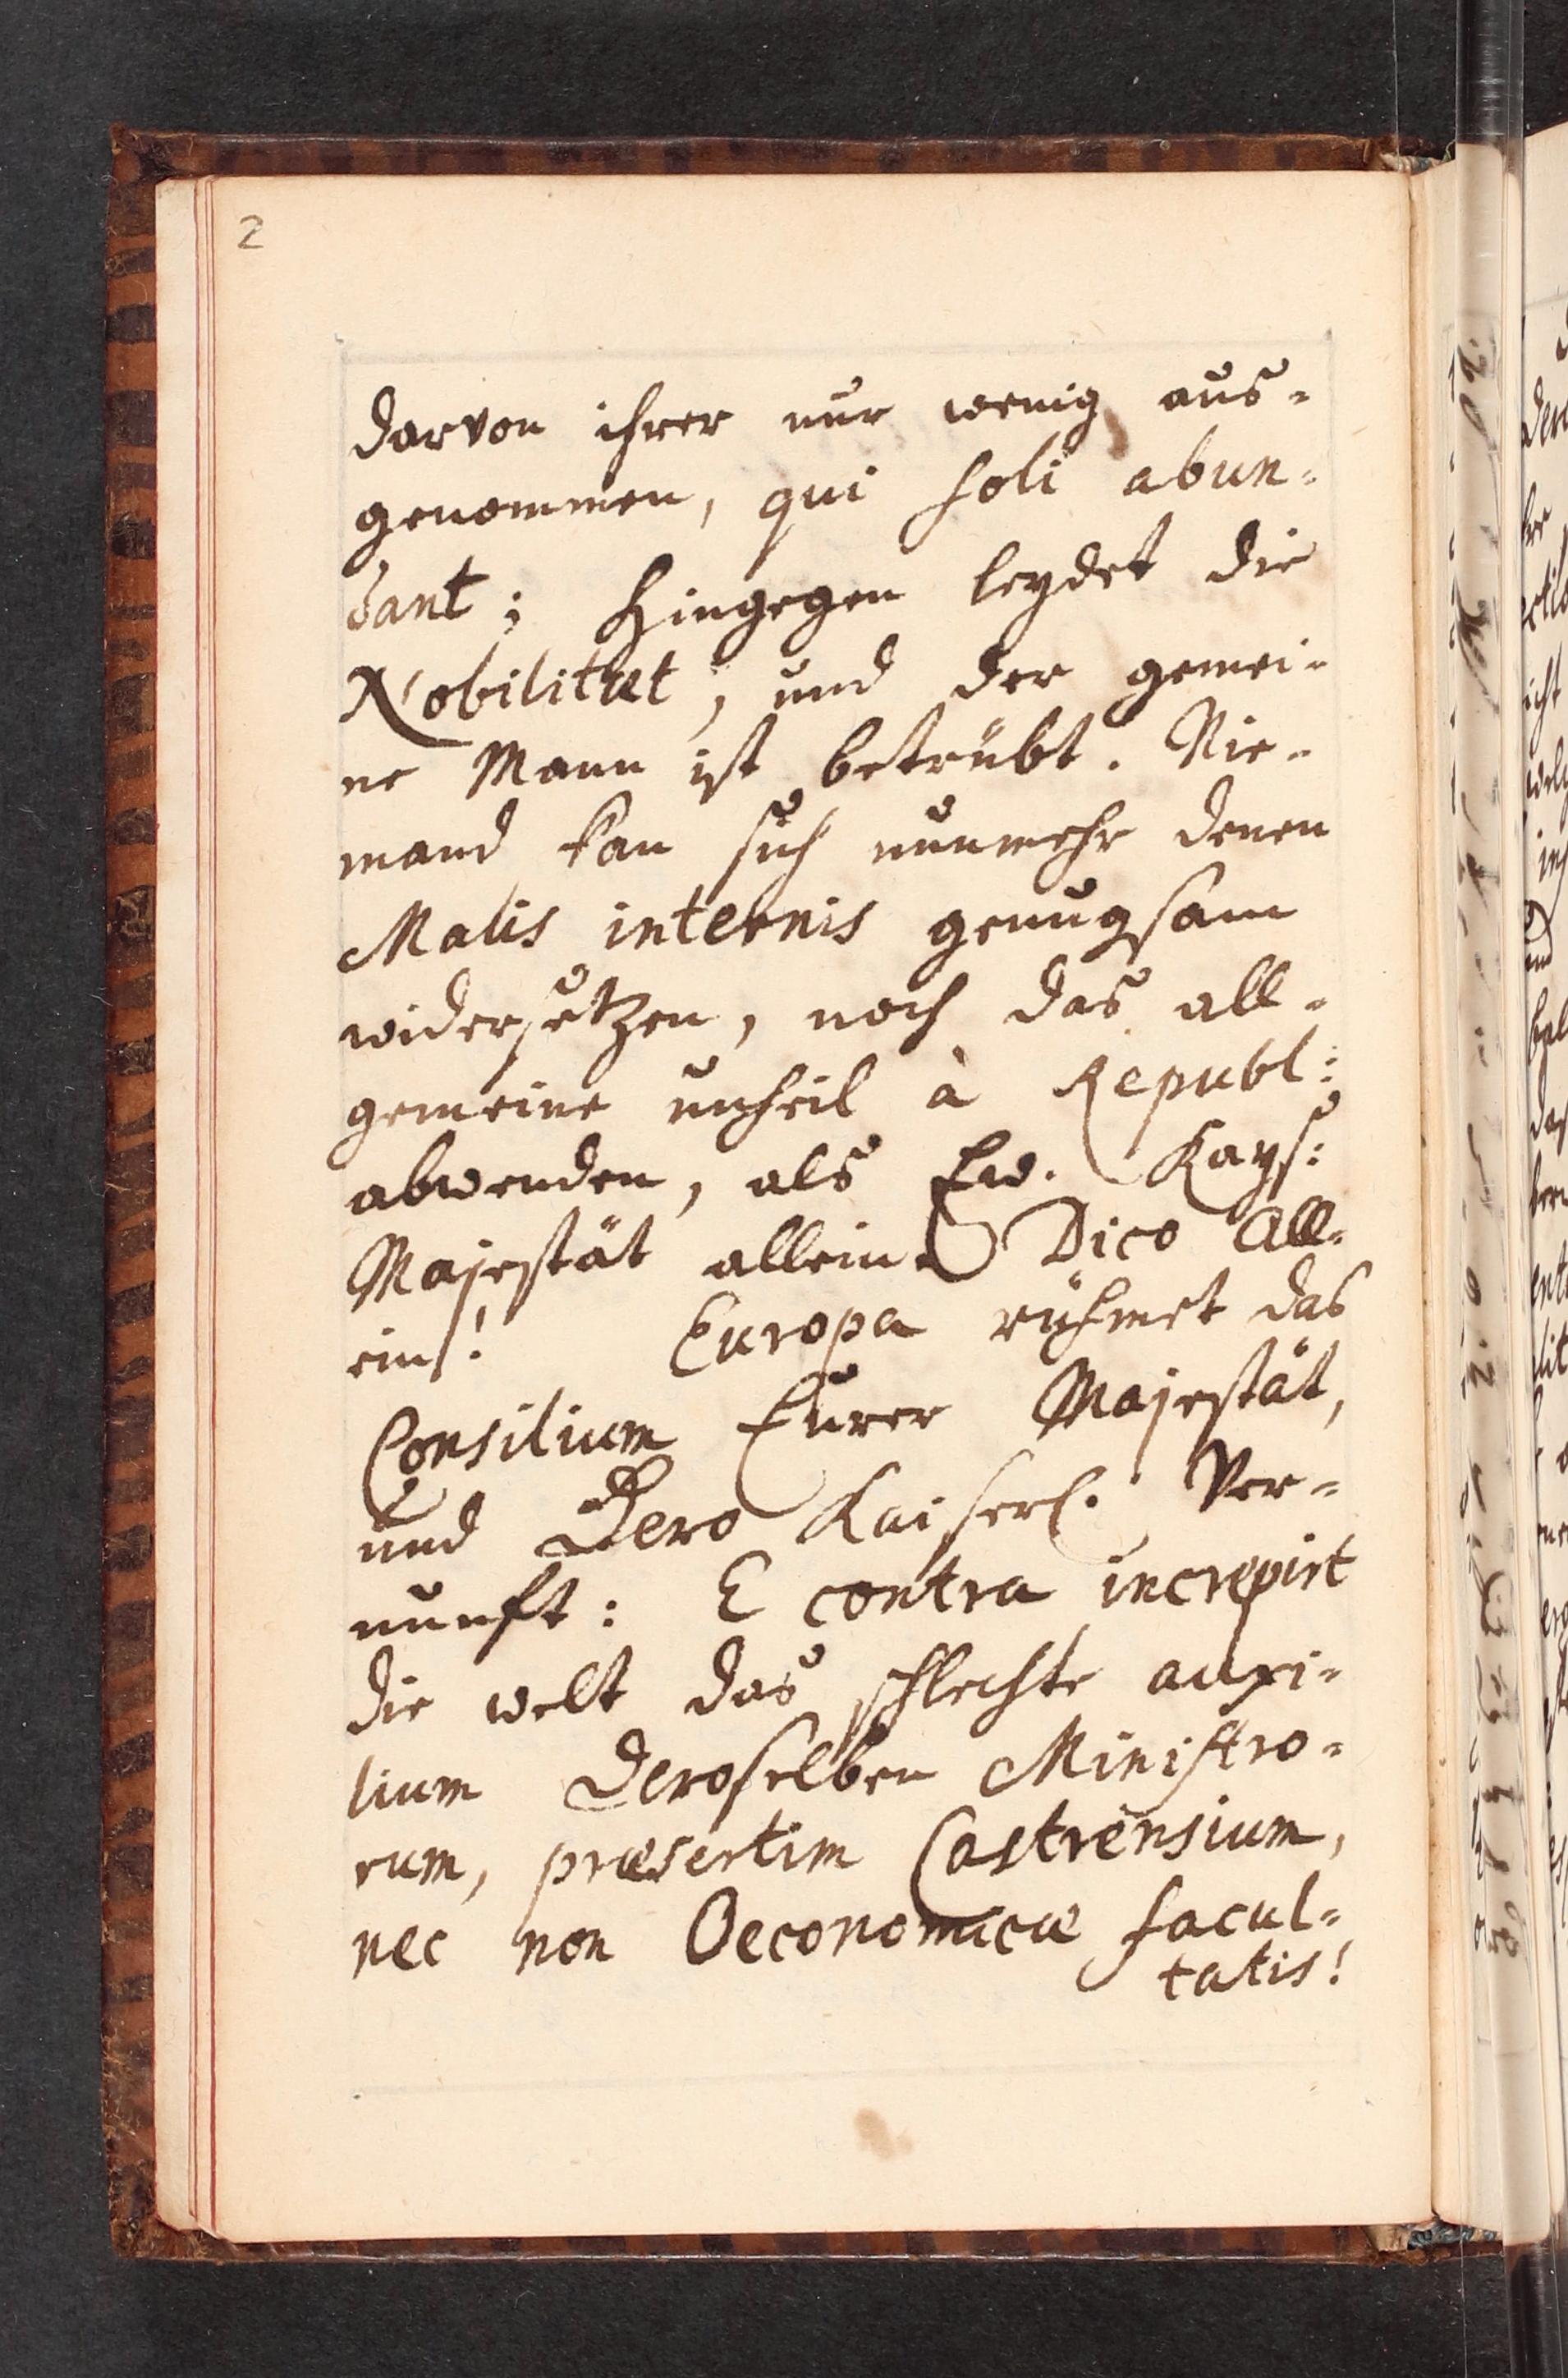 2
darvon ihrer nur wenig aus-
genommen, qui soli abun-
dant; Hingegen leydet die
Nobilitæt, und der gemei-
ne Mann ist betrübt. Nie-
mand kan sich nunmehr denen
Malis internis genugsam
widersetzen, noch das all-
gemeine unheil à Republ:
abwenden, als Ew. Kays:
Majestät allein. Dico All-
ein! Europa rühmet das
Consilium Eurer Majestät,
und Dero Kaiserl. Ver-
nunft: E contra increpirt
die welt das schlechte auxi-
lium Deroselben Ministro-
rum, præsertim Castrensium,
nec non Oeconomicæ facul-
tatis!